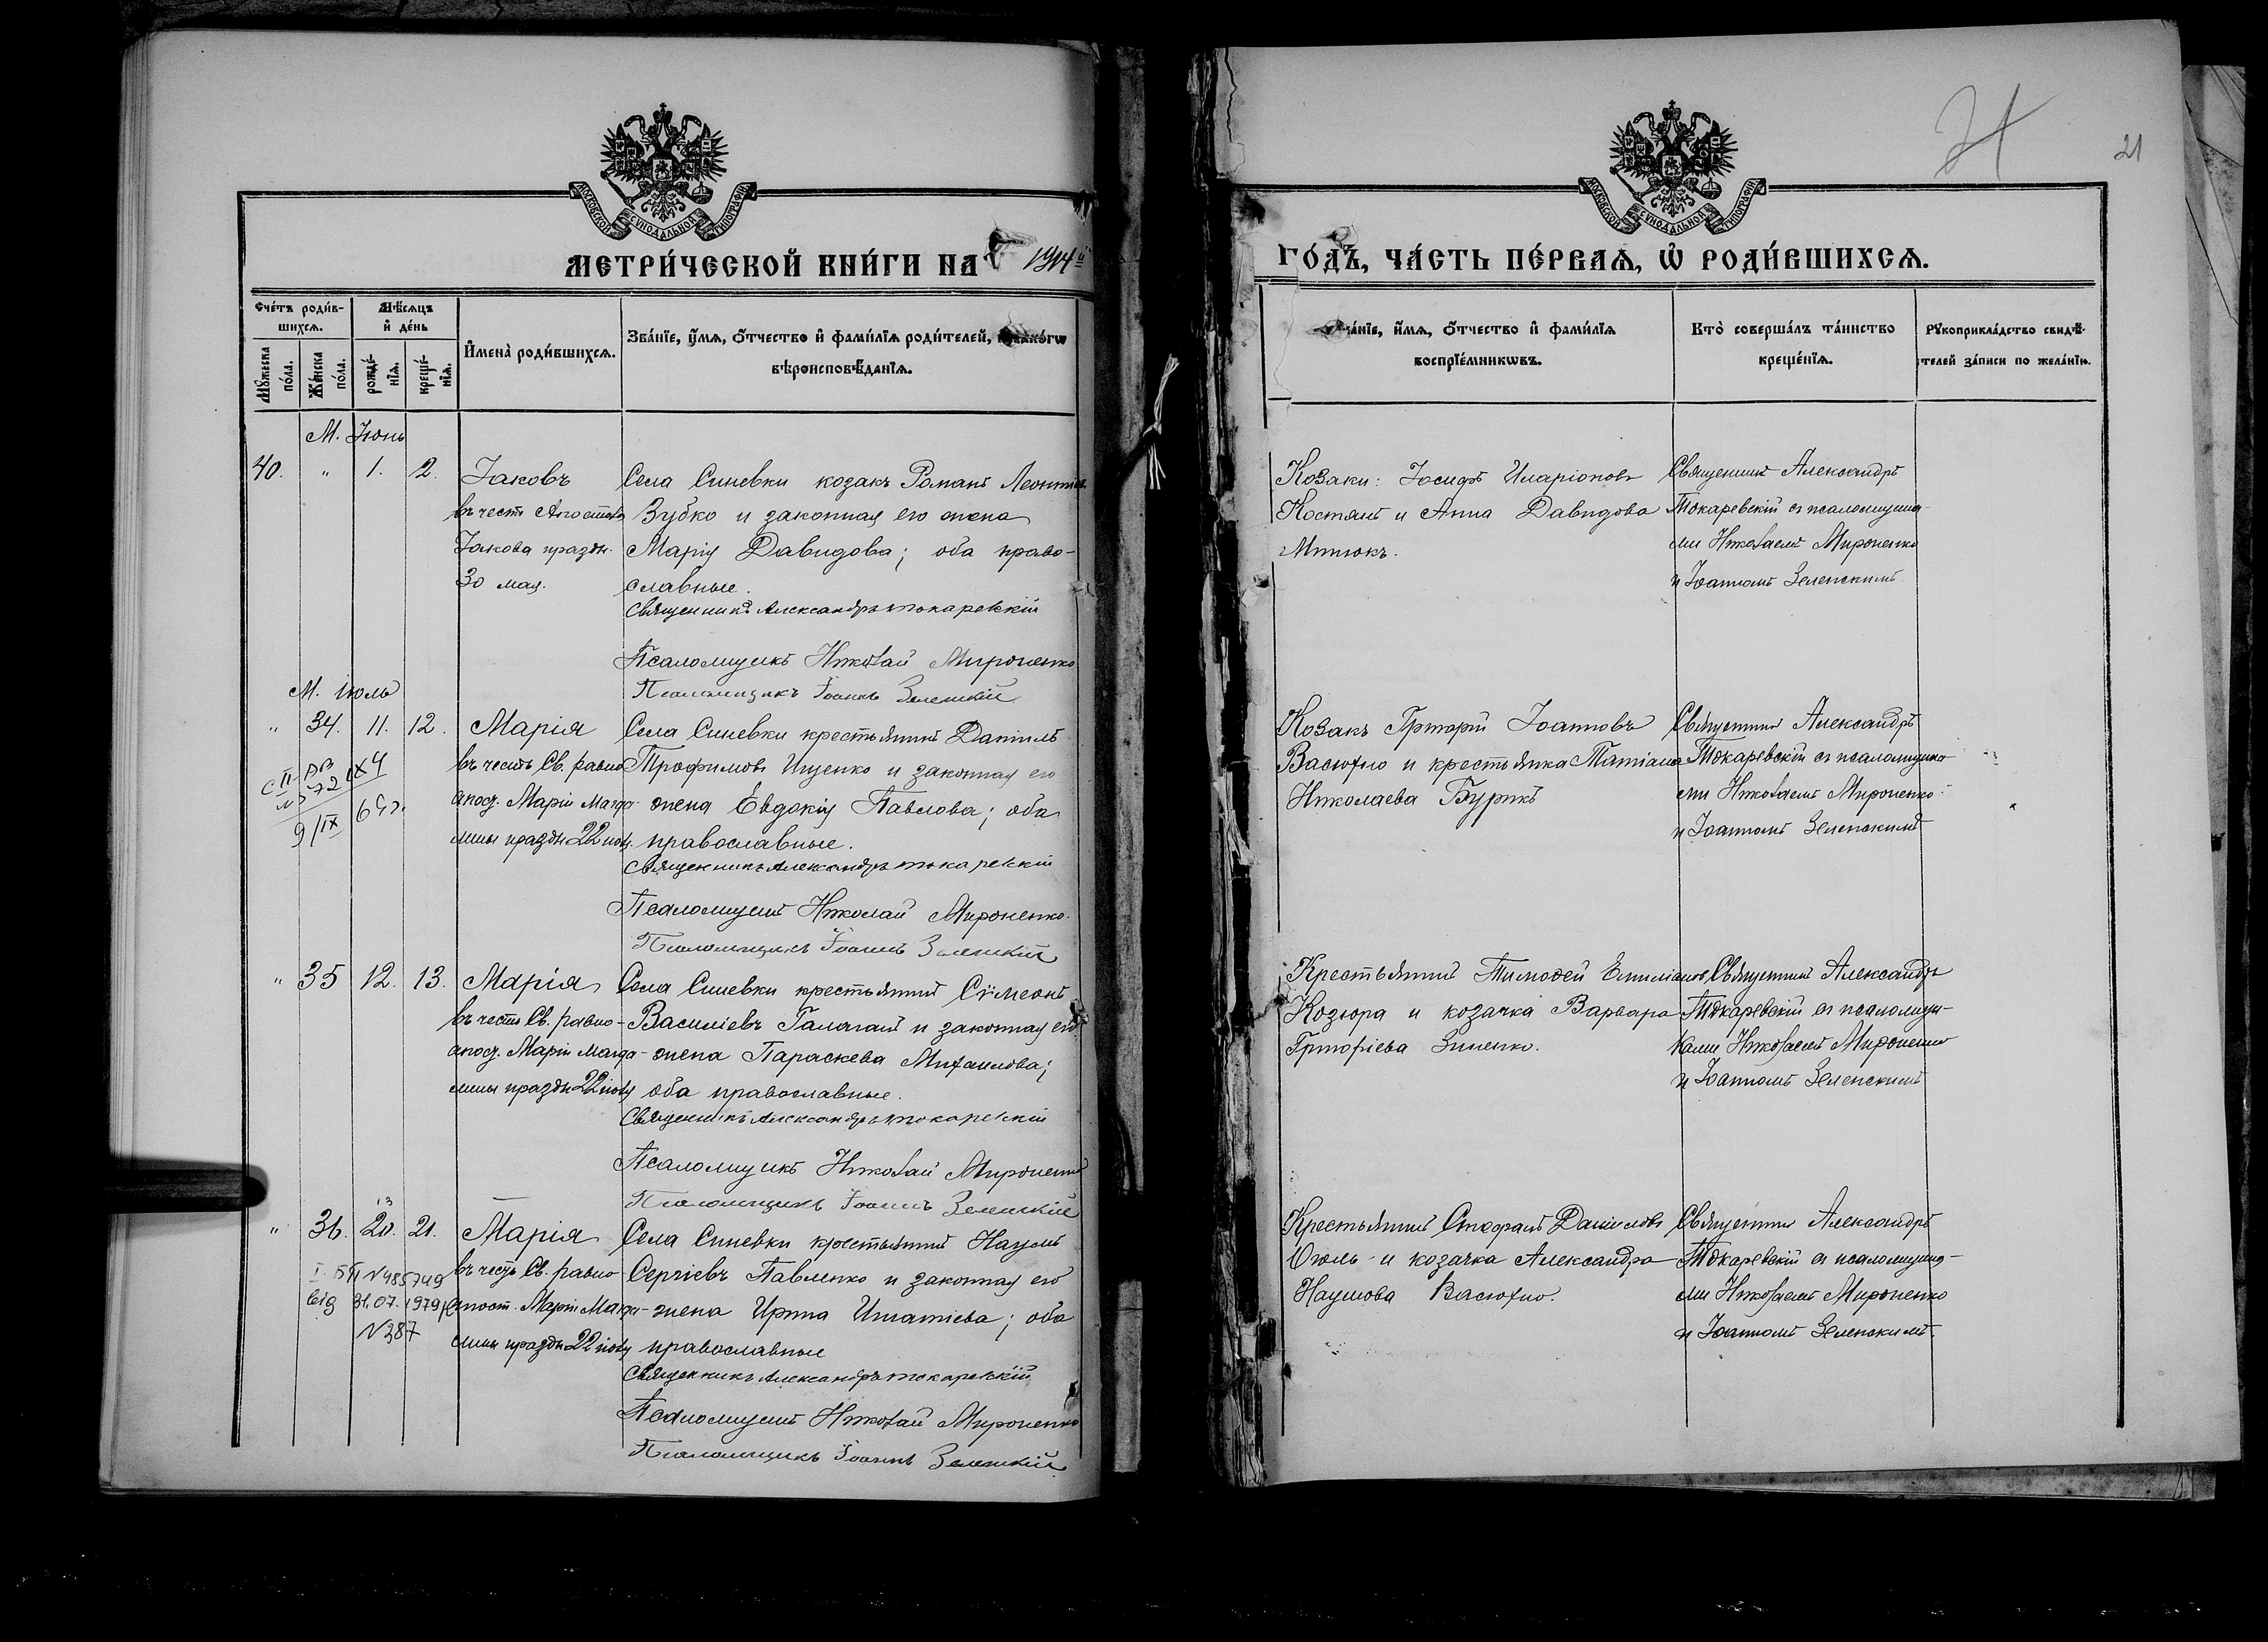 21
МОСКОВСКОЙ СѴНОДАЛЬНОЙ ТИПОГРАФІИ
МОСКОВСКОЙ СѴНОДАЛЬНОЙ ТИПОГРАФІИ
МЕТРИ́ЧЕСКОЙ КНИ́ГИ НА 1914й
ГО́ДЪ, ЧА́СТЬ ПЕ́РВАѦ, Ѡ҆ РОДИ́ВШИХСѦ.
Сче́тъ роди́в-
шихсѧ.
Мѣ́сѧцъ
и҆ де́нь
Мꙋ́жеска
по́ла.
Же́нска
по́ла.
рожде́-
нїѧ.
креще́-
нїѧ.
И҆мена̀ роди́вшихсѧ.
Зва́нїе, и҆́мѧ, ѻ҆́тчество и҆ фами́лїѧ роди́телей,
вѣ́роисповѣ́данїѧ.
и҆́мѧ, ѻ҆́тчество и҆ фами́лїѧ
воспрїе́мникѡвъ.
Кто̀ соверша́лъ та́инство
креще́нїѧ.
Рꙋкоприкла́дство свидѣ́-
телей за́писи по жела́нїю.
М. Іюнь
40. " 1. 2.
Іаковъ
въ честь Апостола
Іакова праздн.
30 мая.
Села Синевки козакъ Романъ Леонтіев.
Зубко и законная его жена
Марія Давидова; оба право-
славные.
Священникъ Александръ Токаревскій
Псаломщикъ Николай Мироненко
Псаломщикъ Іоаннъ Зеленскій
Козаки: Іосифъ Иларіоновъ
Костянъ и Анна Давидова
Священникъ Александръ
Токаревскій съ псаломщика-
ми Николаемъ Мироненко
и Іоанномъ Зеленскимъ.
М. іюль
" 34. 11. 12.
9/IX 64 г.
Марія
въ честь Св. равно
апос. Маріи Магда-
лины праздн 22 іюля.
Села Синевки крестьянинъ Даніилъ
Трофимовъ Ищенко и законная его
жена Евдокія Павлова; оба
православные.
Священникъ Александръ Токаревскій
Псаломщикъ Николай Мироненко.
Псаломщикъ Іоаннъ Зеленскій
Козакъ Григорій Іоанновъ
Васюхно и крестьянка Татіана
Николаева Бурикъ
Священникъ Александръ
Токаревскій съ псаломщика-
ми Николаемъ Мироненко
и Іоанномъ Зеленскимъ
" 35 12. 13.
Марія
въ честь Св. равно-
апос. Маріи Магда-
лины праздн 22 іюля
Села Синевки крестьянинъ Сѵмеонъ
Василіевъ Галаганъ и законная его
жена Параскева Михаилова;
оба православные.
Священникъ Александръ Токаревскій
Псаломщикъ Николай Мироненко
Псаломщикъ Іоаннъ Зеленскій
Крестьянинъ Тимоѳей Емиліановъ
Козюра и козачка Варвара
Григоріева Зиненко.
Священникъ Александръ
Токаревскій съ псаломщи-
ками Николаемъ Мироненко
и Іоанномъ Зеленскимъ
13
" 36. 20. 21.
І-БП №485749
від 31.07.1979р
№387
Марія
въ честь Св. равно
апост. Маріи Магда-
лины праздн 22 іюля
Села Синевки крестьянинъ Наумъ
Сергіевъ Павленко и законная его
жена Ирина Игнатіева; оба
православные
Священникъ Александръ Токаревскій
Псаломщикъ Николай Мироненко
Псаломщикъ Іоаннъ Зеленскій
Крестьянинъ Стефанъ Даніиловъ
и козачка Александра
Наумова Васюхно.
Священникъ Александръ
Токаревскій съ псаломщика-
ми Николаемъ Мироненко
и Іоанномъ Зеленскимъ.